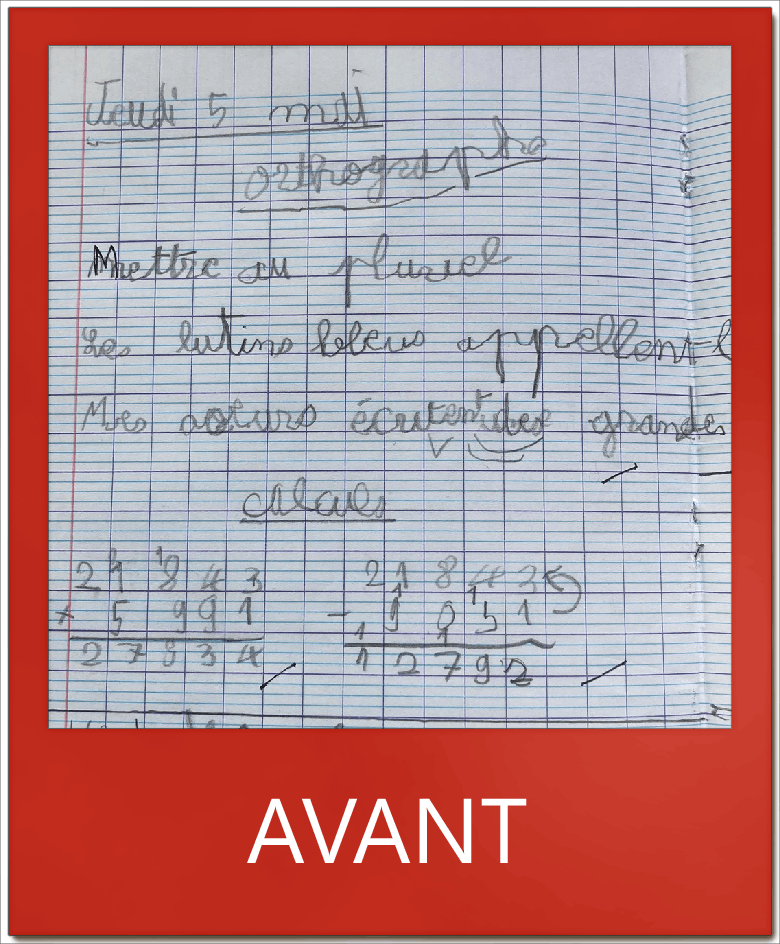 Jeudi 5 mai
orthographe
Mettre au pluriel
Les lutins bleus appellent l
Mes sœurs écrivent des grandes
calculs
21 843
+ 5 991
27834
21 843
- 9 051
12792
AVANT